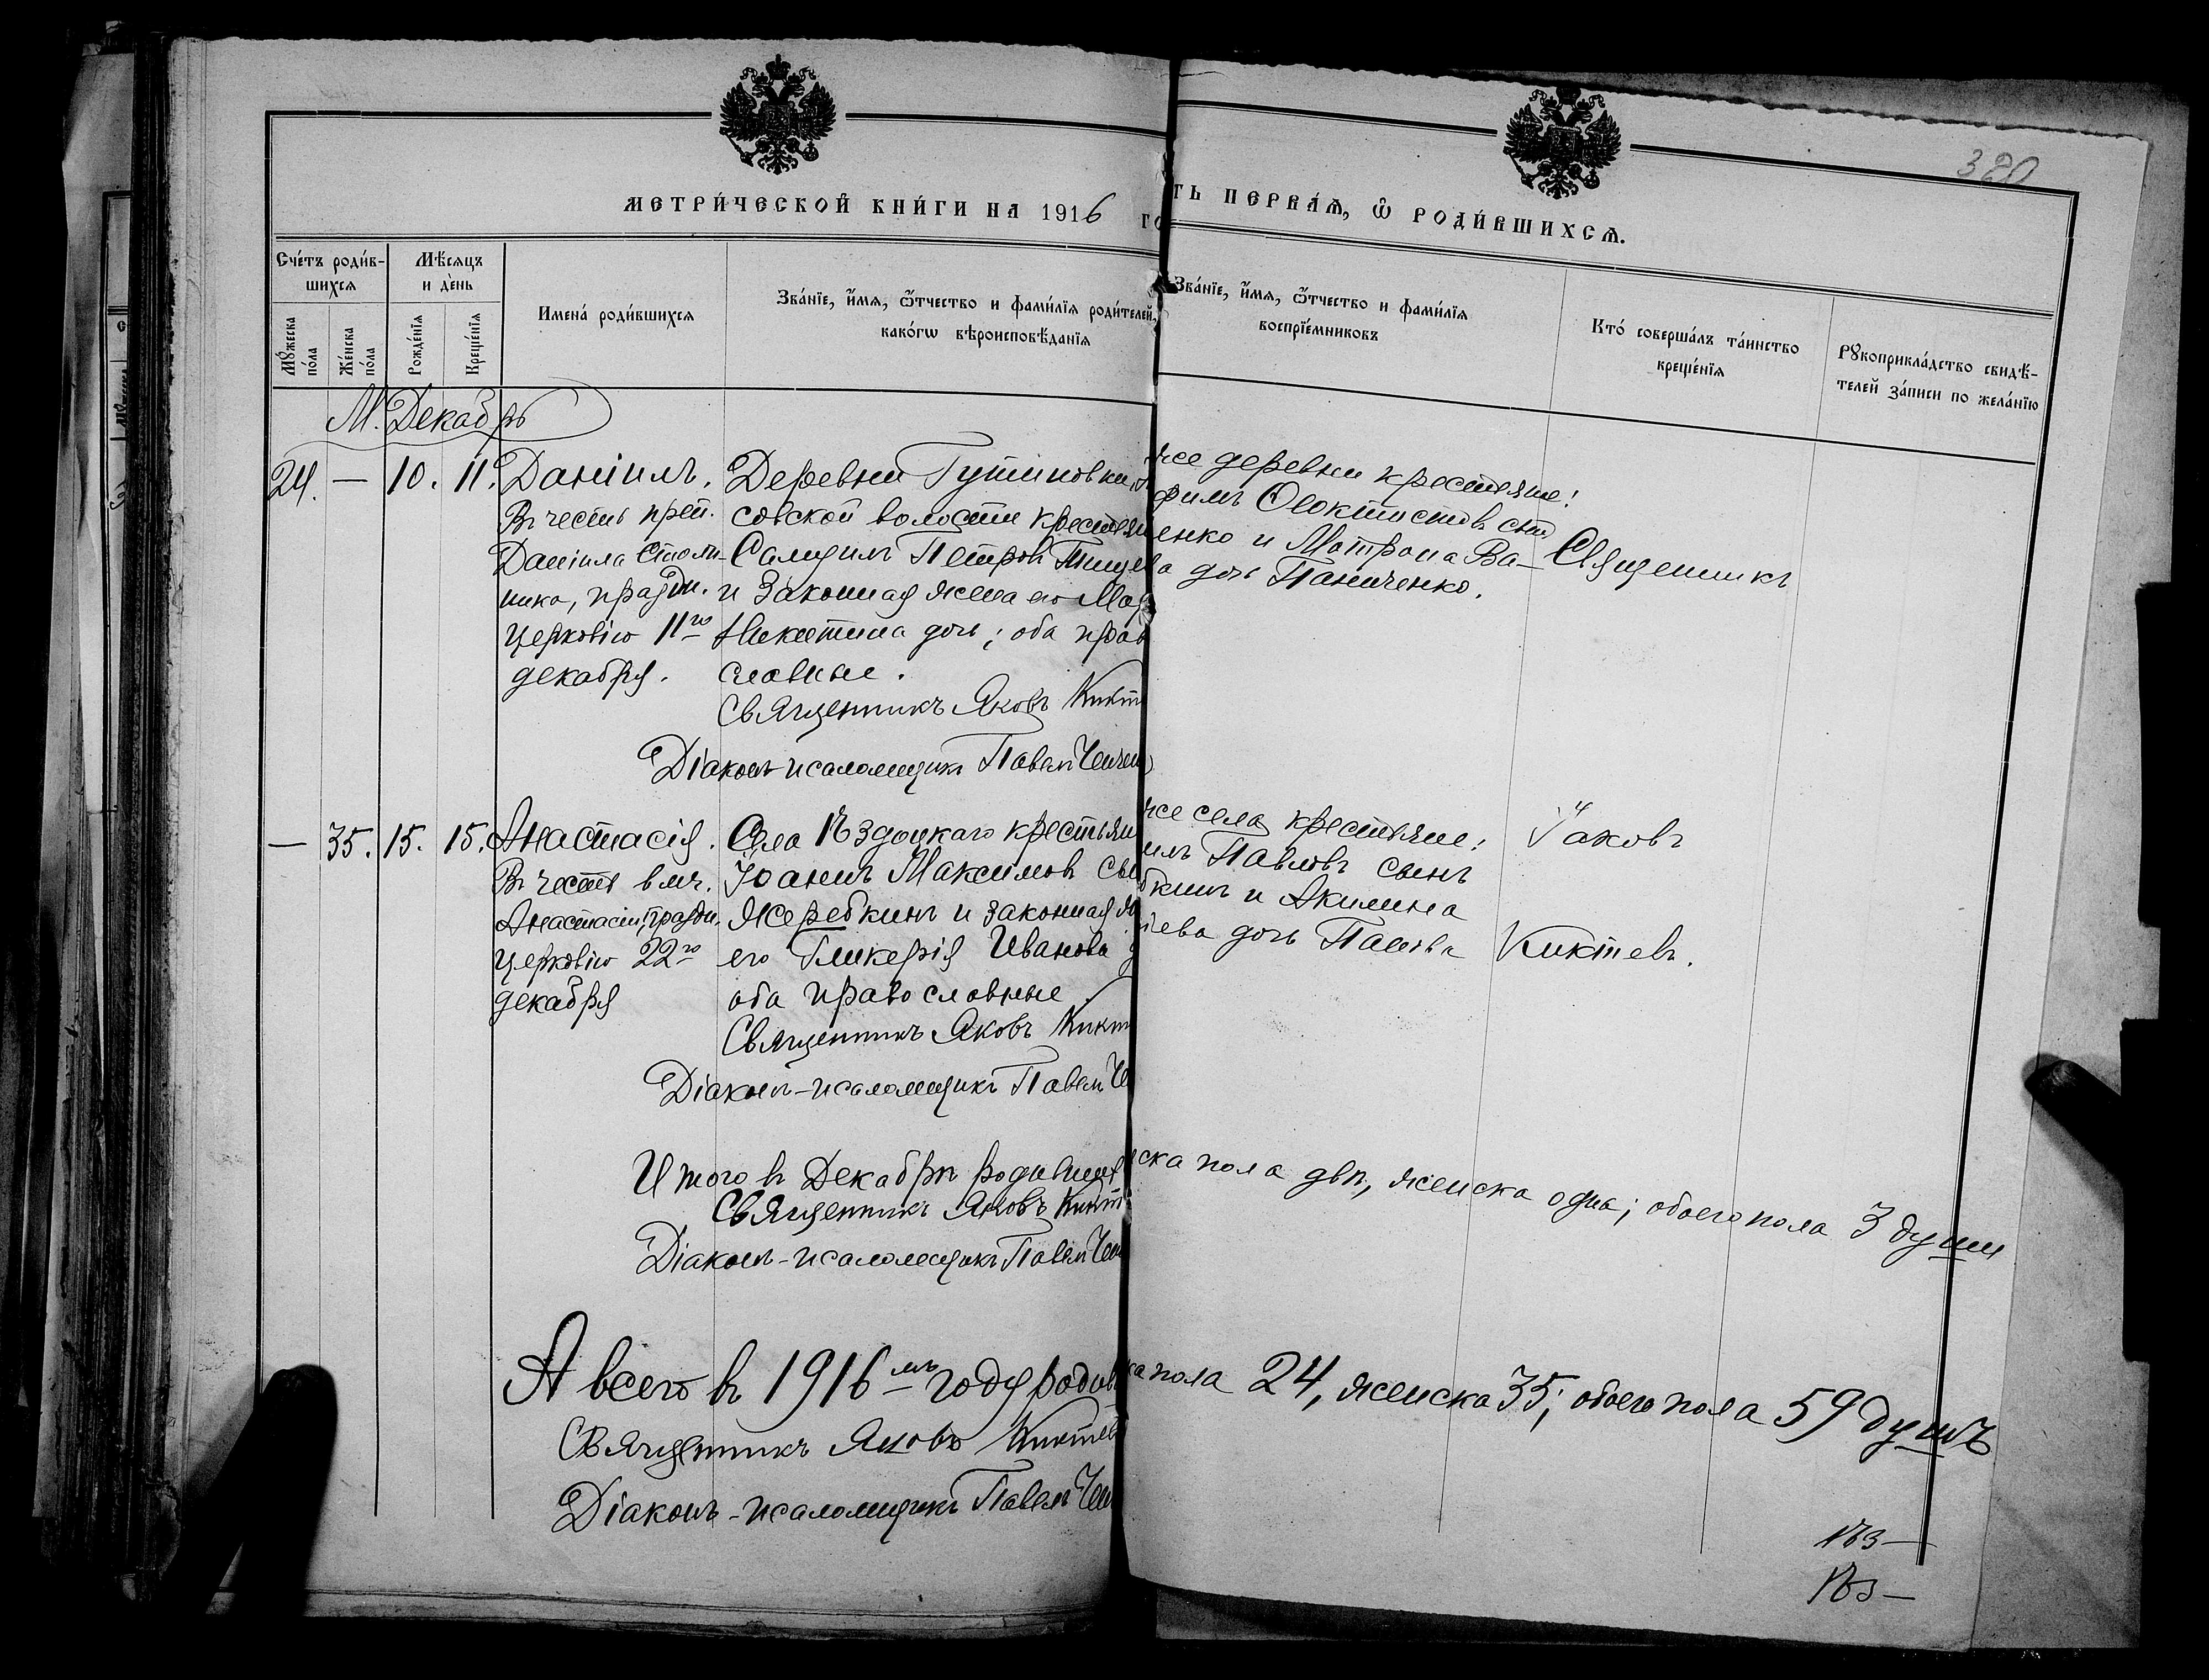 380
МЕТРИ́ЧЕСКОЙ КНИ́ГИ НА 1916 ГО
ТЬ ПЕРВАЯ, Ѿ РОДИ́ВШИХСЯ.
Сче́тъ роди́в-
шихся
Мꙋжеска
по́ла
Же́нска
по́ла
Мѣ́сяцъ
и де́нь
Рожде́нїя
Креще́нїя
Имена́ роди́вшихся
Зва́нїе, и҆́мя, ѻ҆́тчество и фами́лїя роди́телей,
како́гѡ вѣроисповѣ́данїя
Зва́нїе, и҆́мя, ѻ҆́тчество и фами́лїя
воспрїе́мниковъ
Кто́ соверша́лъ та́инство
креще́нїя
Рꙋкоприкла́дство свидѣ́-
телей за́писи по жела́нїю
М. Декабрь
24. — 10. 11. Даніилъ.
Въ честь преп.
Даніила Столп-
ника, праздн.
Церковію 11го
декабря.
Деревни
совской волости крестьян
Петровъ Тище
и законная жена его Мар
Никитина дочь; оба прав
славные.
Священникъ Яковъ Кикт
Діаконъ-псаломщикъ Павелъ
же деревни крестьяне:
фимъ Ѳеоктистовъ сын
енко и Матрона Ва-
а дочь Паниченко.
Священникъ
— 35. 15. 15. Анастасія.
Въ честь вмч.
Анастасіи, праздн.
Церковію 22го
декабря
Села Ѣздоцкаго крестьян
Іоаннъ Максимовъ сы
Жеребкинъ и законная ж
его Гликерія Иванова д
оба православные.
Священникъ Яковъ Кикт
Діаконъ-псаломщикъ Павелъ
же села крестьяне:
илъ Павловъ сынъ
бкинъ и Акилина
іева дочь
Іаковъ
Киктевъ.
Итого въ Декабрѣ родивших
ска пола два, женска одна; обоего пола 3 души
Священникъ Яковъ Кикт
Діаконъ-псаломщикъ Павелъ
А всего въ 1916мъ году родив
ка пола 24, женска 35; обоего пола 59 душъ
Священникъ Яковъ Киктев
Діаконъ-псаломщикъ Павелъ